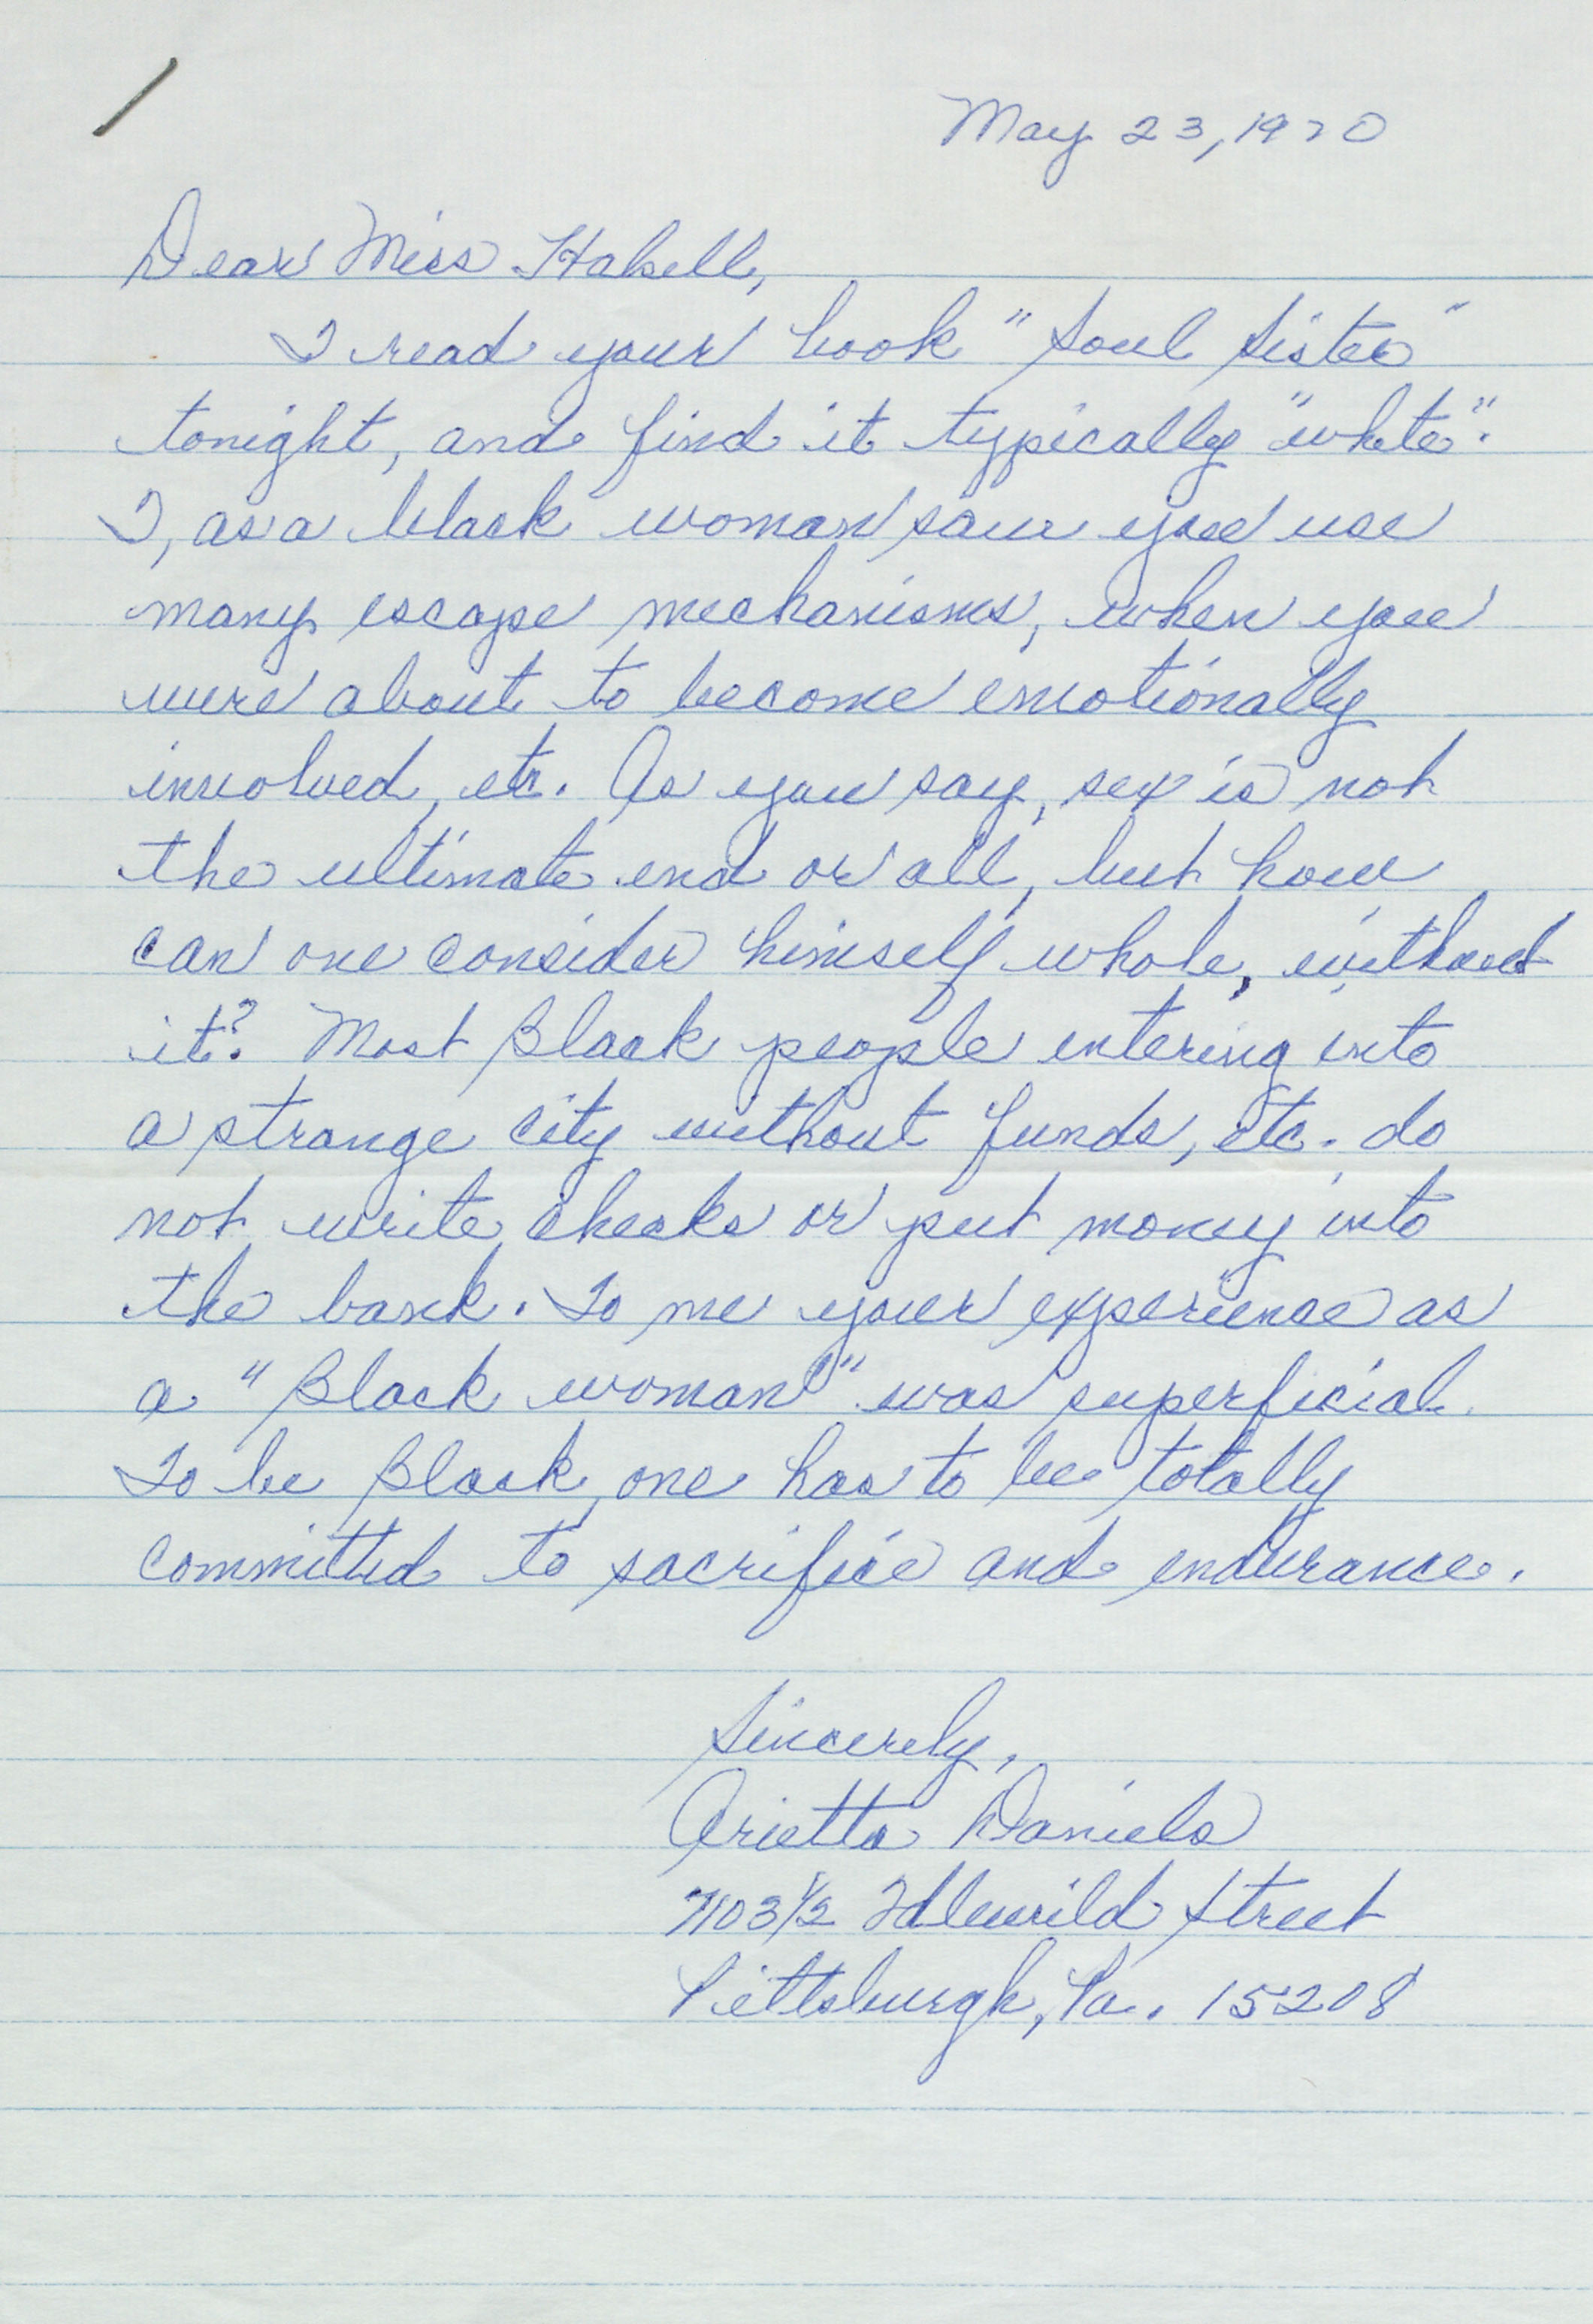 May 23, 1970
Dear Miss Halsell,
I read your book "Soul Sister"
tonight, and find it typically "white".
I, as a black woman saw you use
many escape mechanisms, when you
were about to become emotionally
involved, etc. As you say, sex is not
the ultimate end or all, but how
can one consider himself whole, without
it? Most Black people entering into
a strange city without funds, etc. do
not write checks or put money into
the bank. To me your experience as
a "Black woman" was superficial.
To be Black, one has to be totally
committed to sacrifice and endurance.
Sincerely,
Arietta Daniels
7103 1/2 Idlewild Street
Pittsburgh, Pa. 15208